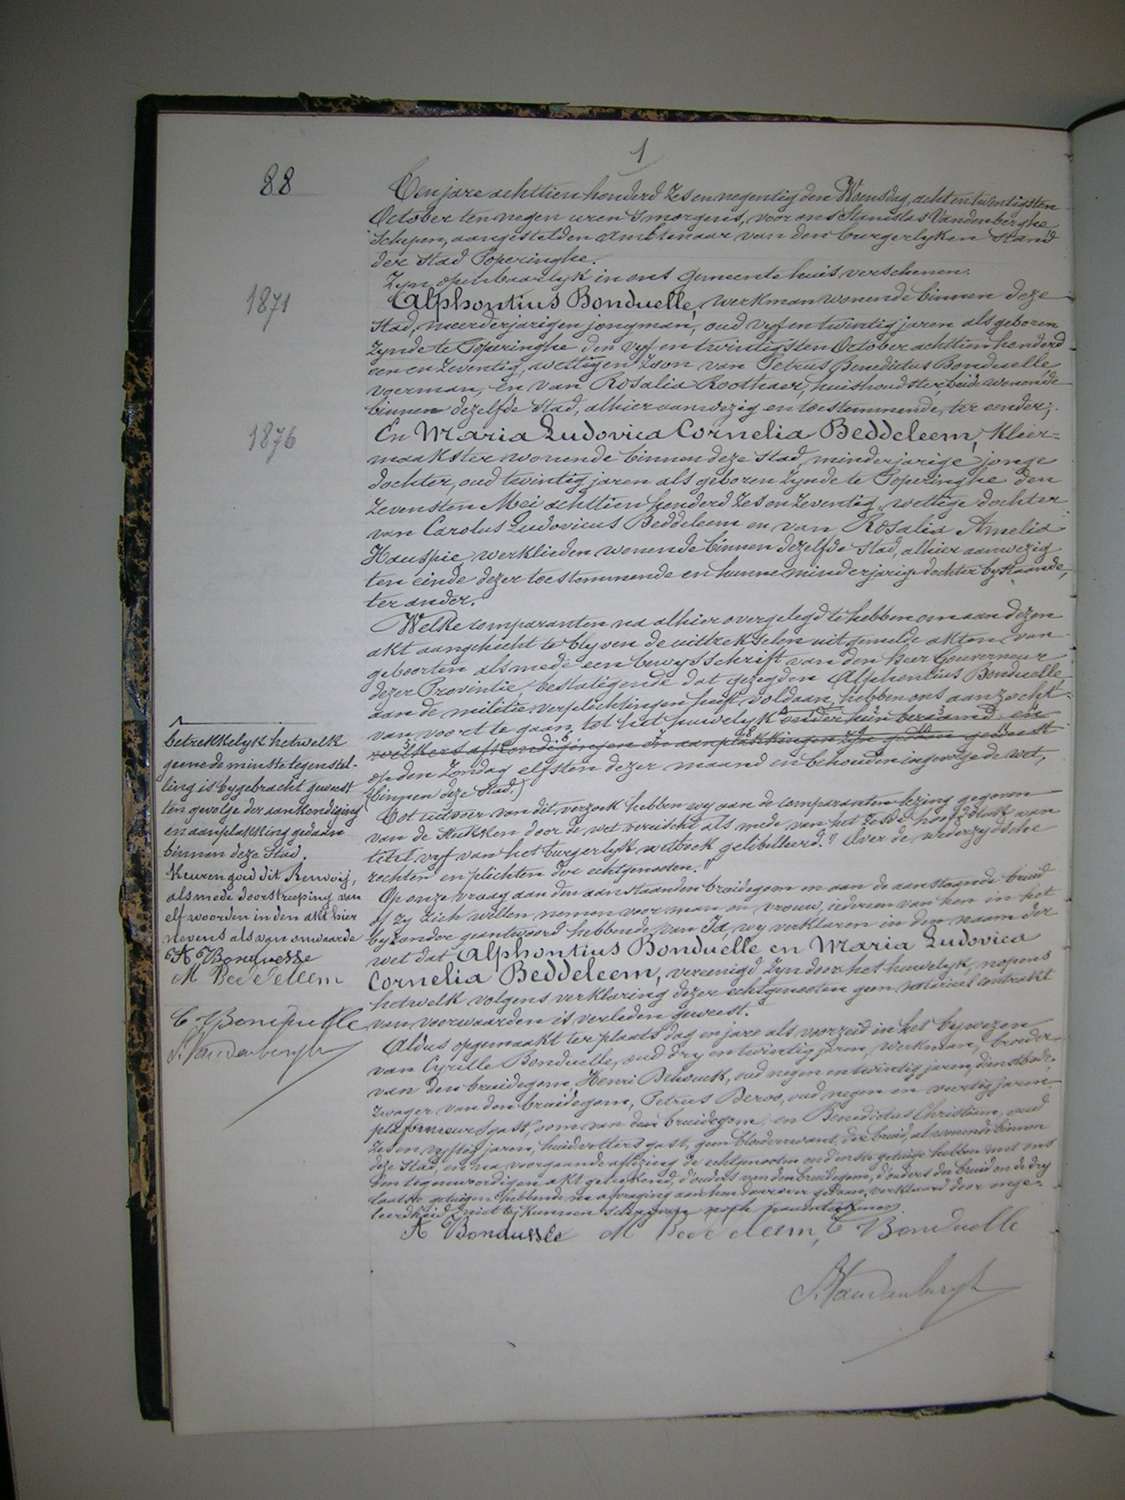 1
88
Een jare achttien honderd zes en negentig den Woensdag, acht en twintigsten
October ten negen uren 's morgens, voor ons Stanislas Vandenberghe
Schepen, aangestelden Ambtenaar van den burgerlyken stand
der Stad Poperinghe.
Zyn openbaarlyk in ons Gemeentehuis, verschenen:
1871
Alphontius Bonduelle, werkman wonende binnen deze
stad, meerderjarigen jongman, oud vyf en twintig jaren als geboren
zynde te Poperinghe den vyf en twintigsten October achttien honderd
een en zeventig, wettigen zoon van Petrus Benedictus Bonduelle
voerman, en van Rosalia Roothaer, huishoudster, beide wonende
binnen dezelfde stad, alhier aanwezig en toestemmende, ter eender;
1876
En Maria Ludovica Cornelia Beddeleem, kleer=
maakster wonende binnen deze stad, minderjarige jonge
dochter, oud twintig jaren als geboren zynde te Poperinghe den
zevensten Mei achttien honderd zes en zeventig, wettige dochter
van Carolus Ludovicus Beddeleem en van Rosalia Amelia
Hauspie, werklieden wonende binnen dezelfde stad, alhier aanwezig
ten einde dezer toestemmende en hunne minderjarige dochter bystaande,
ter ander.
Welke comparanten na alhier overgelegd te hebben om aan dezen
akt aangehecht te blyven de uittrekselen uit gemelde akten van
geboorten als mede een bewysschrift van den heer Gouverneur
dezer Proventie, bestatigende dat gezegden Alphontius Bonduelle,
aan de militie verplichtingen heeft voldaan, hebben ons aanzocht
van voort te gaan tot het huwelyk onder hun beraamd en
welkers afkondigingen en aanplakkingen zyn gedaan geweest
op den Zondag elfsten dezer maand en behouden ingevolge de wet,
binnen deze Stad.
Tot uitvoer van dit verzoek hebben wy aan de comparanten lezing gegeven
van de stukken door de wet vereischt als mede van het zesde hoofdstuk van
titel vyf van het burgerlyk wetboek getituleerd. "Over de wederzydsche
rechten en plichten der echtgenooten."
Op onze vraag aan den aanstaanden bruidegom en aan de aanstaande bruid
of zy zich willen nemen voor man en vrouw, iedereen van hen in het
byzonder geantwoord hebbende van Ja, wy verklaren in den naam der
wet dat Alphontius Bonduelle en Maria Ludovica
Cornelia Beddeleem, vereenigd zyn door het huwelyk, nopens
hetwelk volgens verklaring dezer echtgenooten geen notarieel contrakt
van voorwaarden is verleden geweest.
Aldus opgemaakt ter plaats dag en jare als voorzeid in het bywezen
van Cyrille Bonduelle, oud dry en twintig jaren, werkman, broeder
van den bruidegom, Henri Behouck, oud negen en twintig jaren, dienstbode,
zwager van den bruidegom, Petrus Beroo, oud negen en veertig jaren
plafonneursgast, oom van den bruidegom, en Benedictus Christiaen, oud
zes en vyftig jaren, huidevettersgast, geen bloedverwant, der bruid, al wonende binnen
deze Stad, en na voorgaande aflezing de echtgenooten en d'eerste getuige hebben met ons
den tegenwoordigen akt geteekend, d'ouders van den bruidegom, d'ouders der bruid en de dry
laatste getuigen hebbende na afvraging aan hen daarover gedaan, verklaard door onge=
leerdheid niet te kunnen schryven noch handteekenen.
A Bonduelle M Beddeleem, C Bonduelle
S. Vandenberghe
betrekkelyk hetwelk
geene de minste tegenstel-
ling is bygebracht geweest
ten gevolge der aankondiging
en aanplakking gedaan
binnen deze Stad.
Keuren goed dit Renvooi,
als mede doorstreeping van
elf woorden in den akt hier
nevens als van onwaarde
A Bonduelle
M Beddeleem
C Bonduelle
S. Vandenberghe